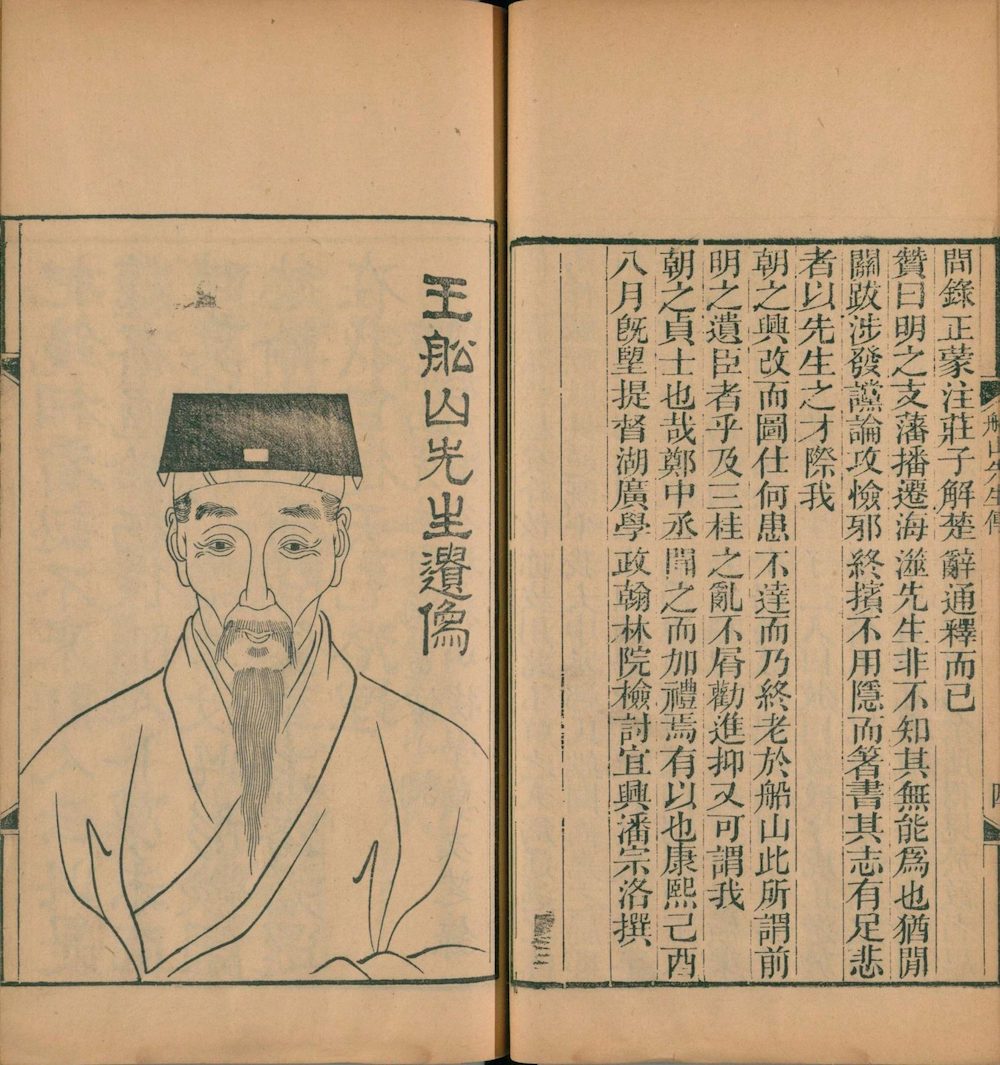 問錄正蒙注莊子解楚辭通釋而已
贊曰明之支藩播遷海澨先生非不知其無能爲也猶閒
關跋涉發讜論攻憸邪終擯不用隱而箸書其志有足悲
者以先生之才際我
朝之興改而圖仕何患不達而乃終老於船山此所謂前
明之遺臣者乎及三桂之亂不屑勸進抑又可謂我
朝之貞士也哉鄭中丞聞之而加禮焉有以也康熙己酉
八月旣朢提督湖廣學政翰林院檢討宜興潘宗洛撰
船山先生傳
四
王舩山先生遺像